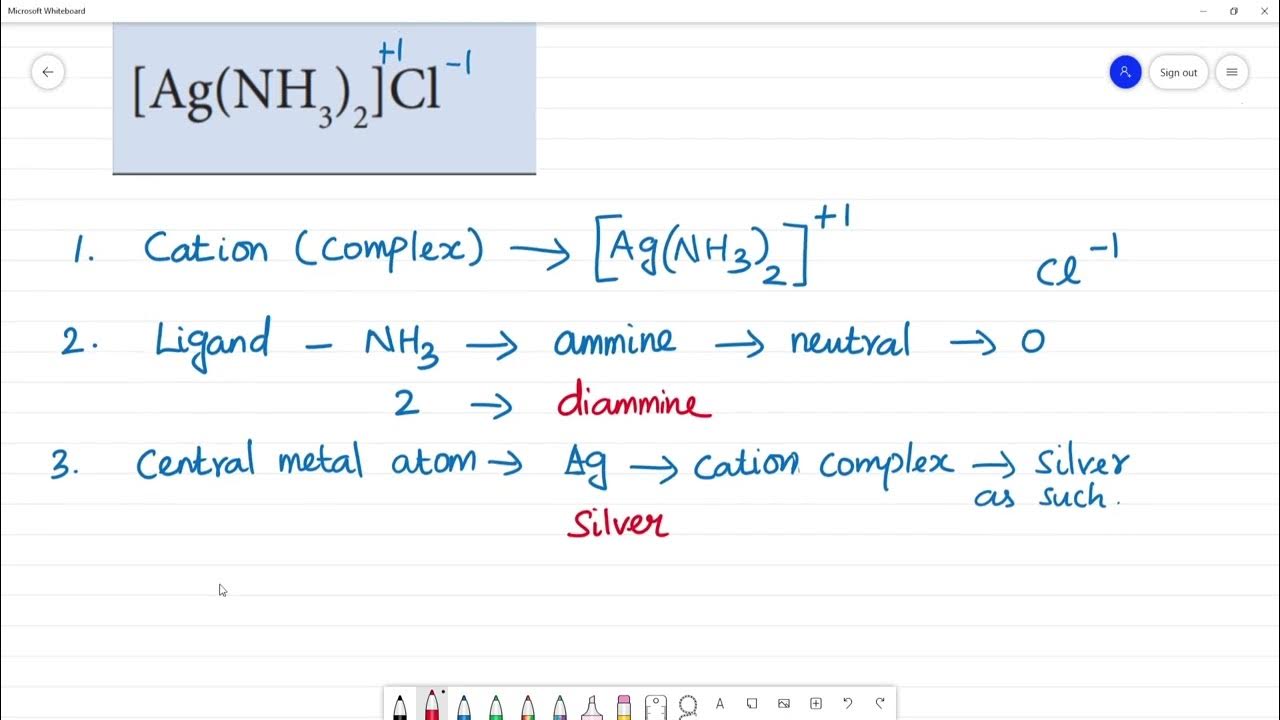 Microsoft Whiteboard
Sign out
[Ag(NH₃)₂]⁺¹Cl⁻¹
1. Cation (Complex) → [Ag(NH₃)₂]⁺¹ Cl⁻¹
2. Ligand – NH₃ → ammine → neutral → 0
2 → diammine
3. Central metal atom → Ag → cation complex → Silver
as such.
Silver
A